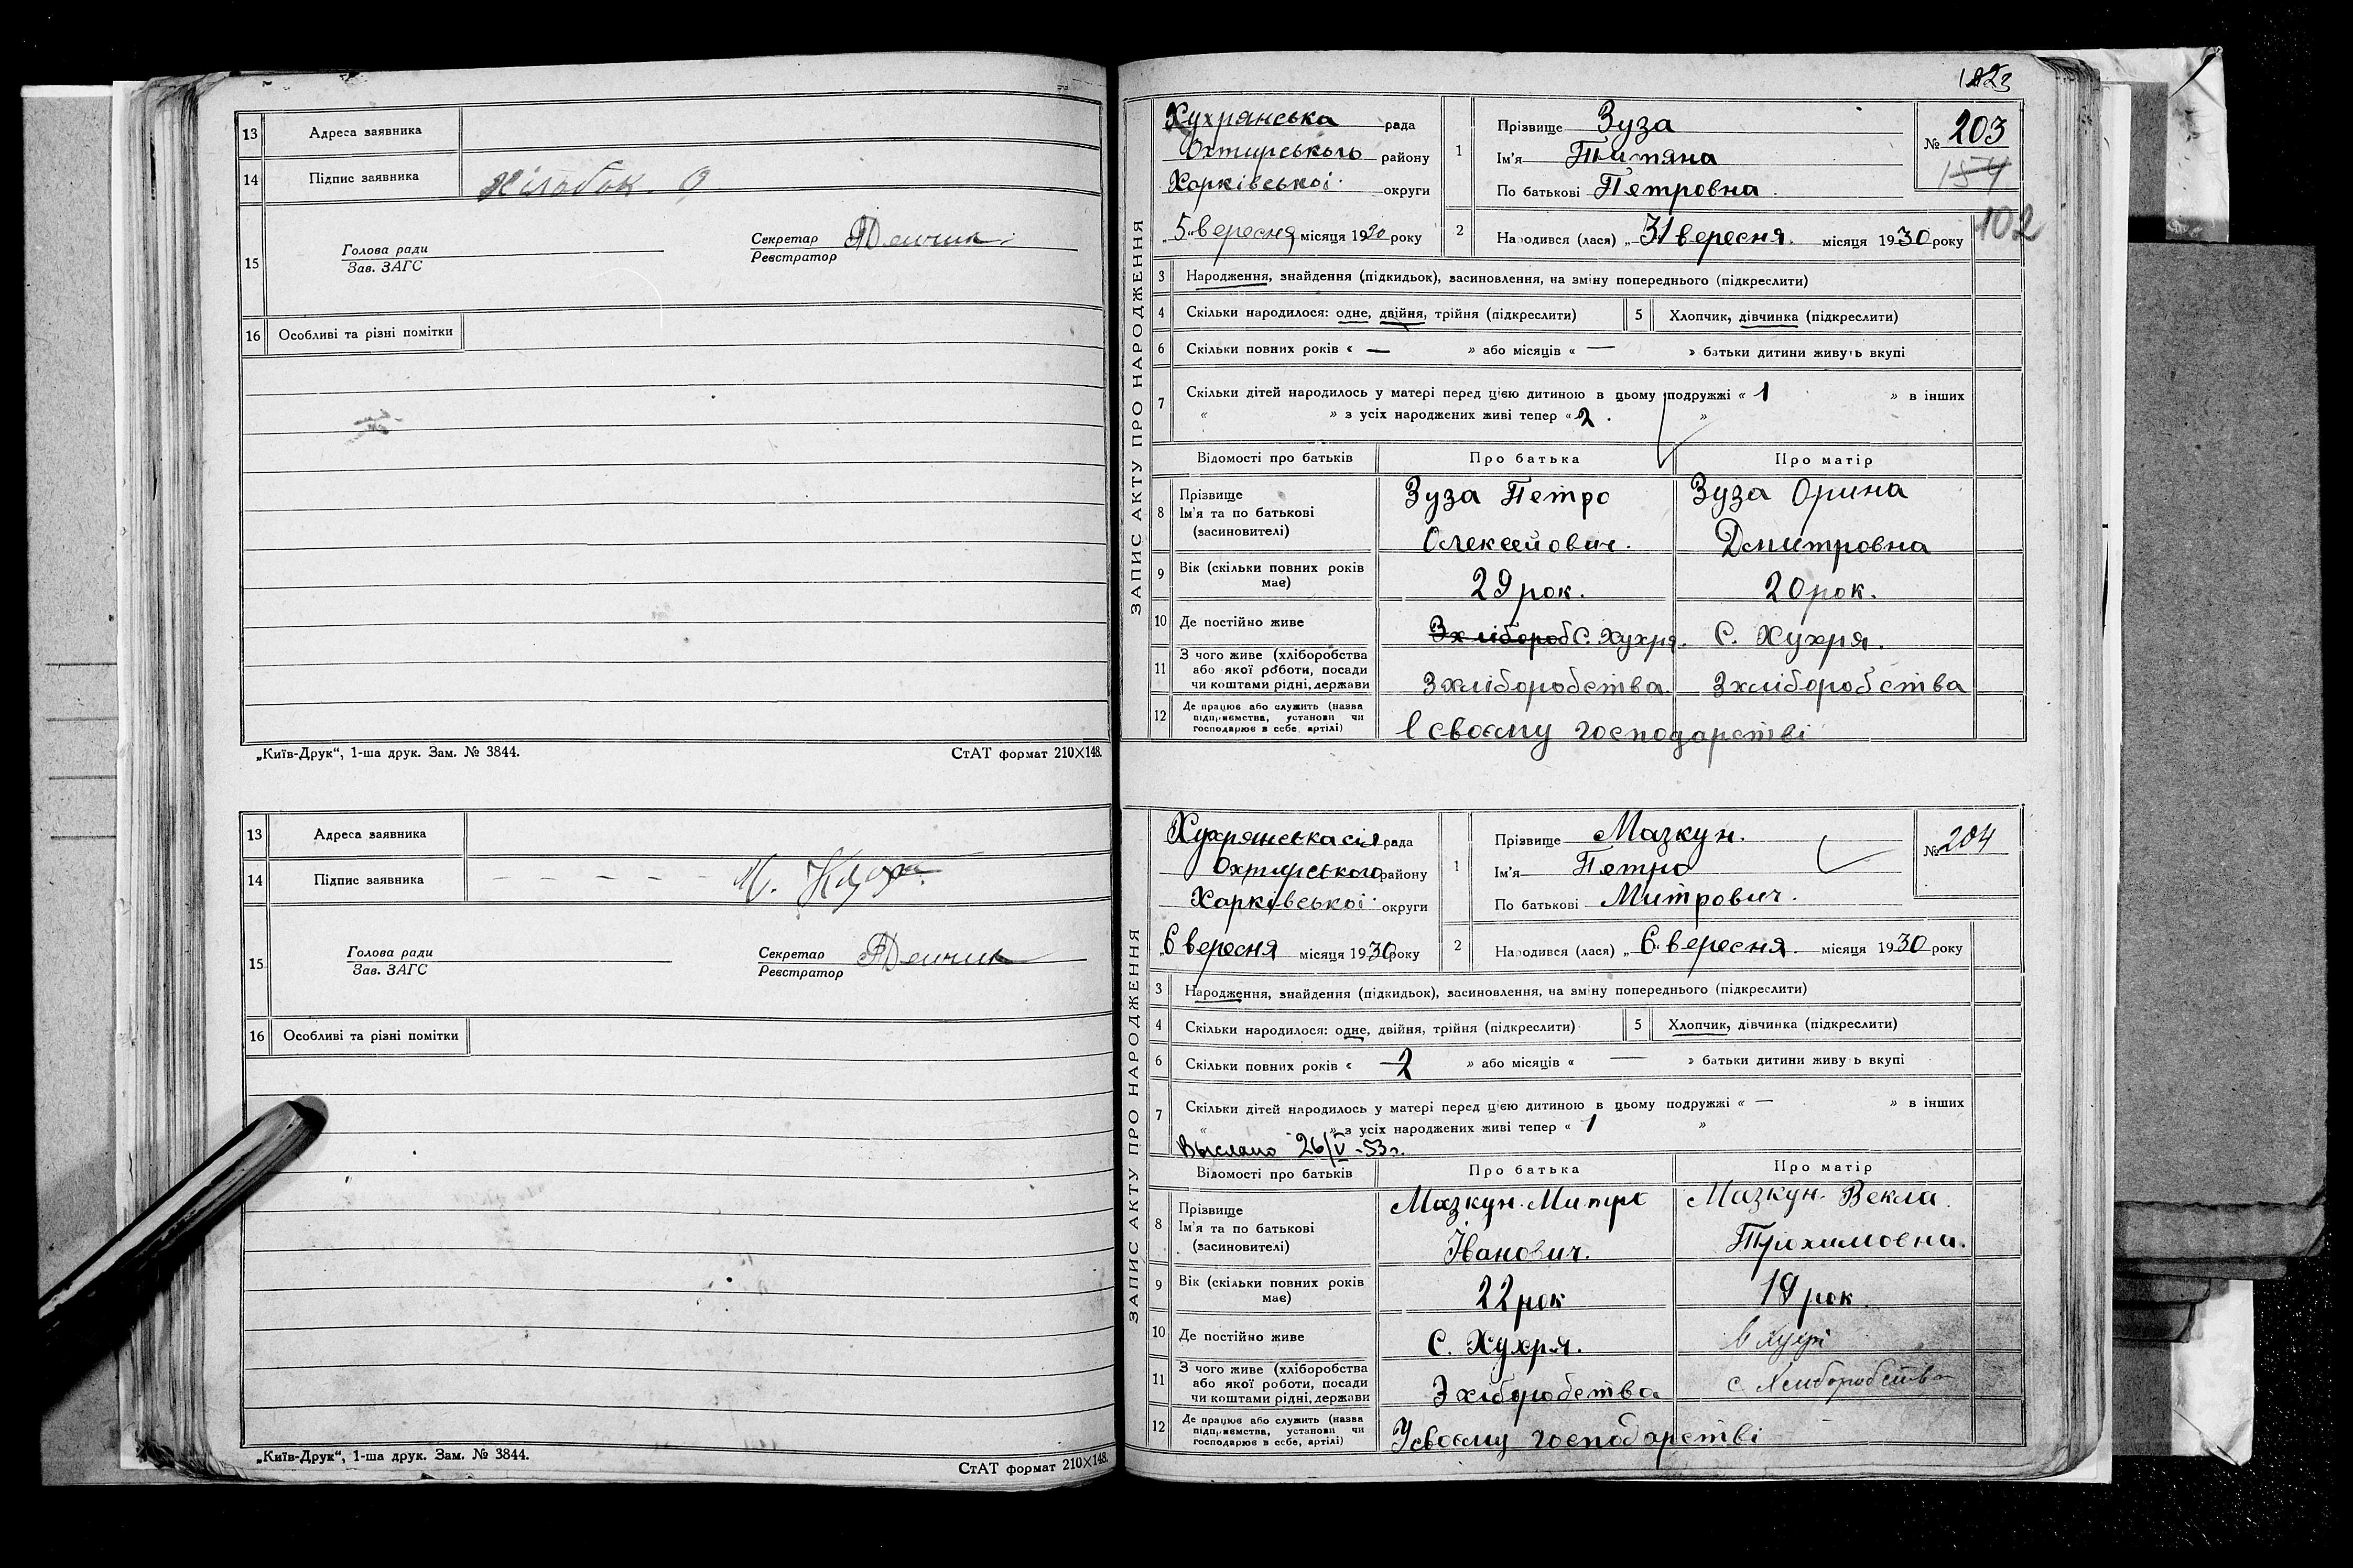 13 Адреса заявника
14 Підпис заявника
15 Голова ради
Зав. ЗАГС
Секретар
Реєстратор
16 Особливі та різні помітки
„Київ-Друк“, 1-ша друк. Зам. № 3844.
СтАТ формат 210×148.
13 Адреса заявника
14 Підпис заявника
15 Голова ради
Зав. ЗАГС
Секретар
Реєстратор
16 Особливі та різні помітки
„Київ-Друк“, 1-ша друк. Зам. № 3844.
СтАТ формат 210×148.
ЗАПИС АКТУ ПРО НАРОДЖЕННЯ
Хухрянська рада
Охтирського району
Харківської округи
„5 вересня місяця 1930 року
1 Прізвище Зуза
Ім'я Титяна
По батькові Петровна
№ 203
154
102
2 Народився (лася) „31 вересня. місяця 1930 року
3 Народження, знайдення (підкидьок), засиновлення, на зміну попереднього (підкреслити)
4 Скільки народилося: одне, двійня, трійня (підкреслити) 5 Хлопчик, дівчинка (підкреслити)
6 Скільки повних років « — » або місяців « — » батьки дитини живуть вкупі
7 Скільки дітей народилось у матері перед цією дитиною в цьому подружжі « 1 » в інших
« » з усіх народжених живі тепер « 2 . »
Відомості про батьків Про батька Про матір
8 Прізвище
Ім'я та по батькові
(засиновителі)
Зуза Петро
Олексейович.
Зуза Орина
Дмитровна
9 Вік (скільки повних років має) 29 рок. 20 рок.
10 Де постійно живе Зхлібороб С. Хухря. С. Хухря.
11 З чого живе (хліборобства
або якої роботи, посади
чи коштами рідні, держави
Зхліборобства Зхліборобства
12 Де працює або служить (назва
підприємства, установи чи
господарює в себе, артілі)
В своєму господарстві
ЗАПИС АКТУ ПРО НАРОДЖЕННЯ
Хухрянська сіл рада
Охтирського району
Харківської округи
„6 вересня місяця 1930 року
1 Прізвище Мазкун.
Ім'я Петро
По батькові Митрович.
№ 204
2 Народився (лася) „6. вересня. місяця 1930 року
3 Народження, знайдення (підкидьок), засиновлення, на зміну попереднього (підкреслити)
4 Скільки народилося: одне, двійня, трійня (підкреслити) 5 Хлопчик, дівчинка (підкреслити)
6 Скільки повних років « 2 » або місяців « — » батьки дитини живуть вкупі
7 Скільки дітей народилось у матері перед цією дитиною в цьому подружжі « — » в інших
« » з усіх народжених живі тепер « 1 »
Выслано 26/V-53г.
Відомості про батьків Про батька Про матір
8 Прізвище
Ім'я та по батькові
(засиновителі)
Мазкун. Митро
Іванович.
Мазкун. Векла
Трохимовна.
9 Вік (скільки повних років має) 22 рок 19 рок
10 Де постійно живе С. Хухря. В Хухрі
11 З чого живе (хліборобства
або якої роботи, посади
чи коштами рідні, держави
З хліборобства
12 Де працює або служить (назва
підприємства, установи чи
господарює в себе, артілі)
У своєму господарстві